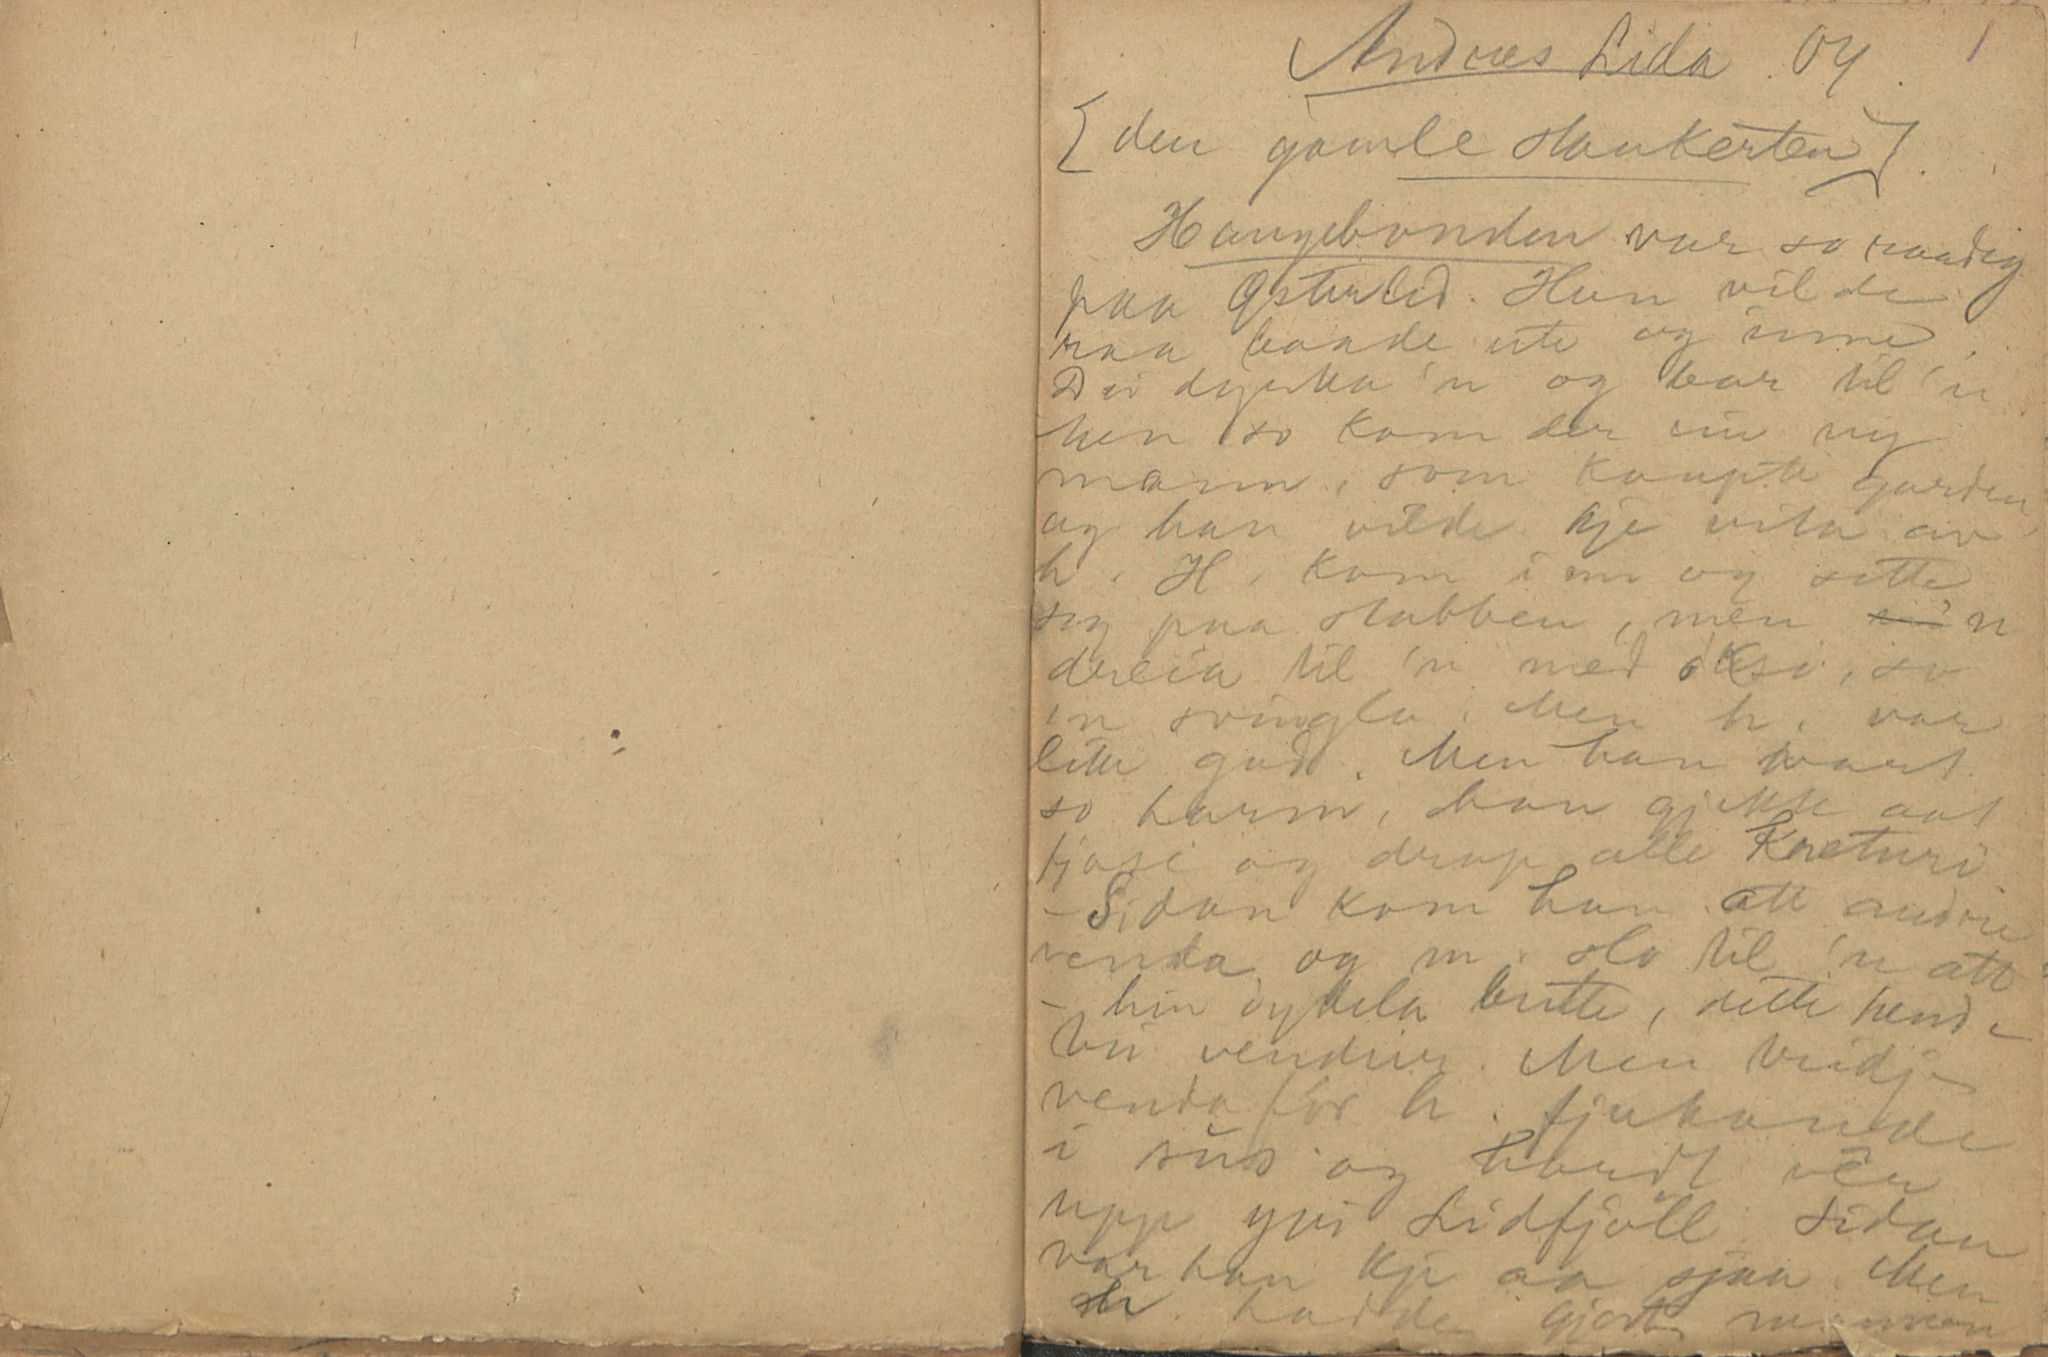 Andres Lida. 04. 1
[den gamle skukerten].
Haugebonden var so raadig
paa Østerlid. Han vilde
raa baade ute og inne.
Dei dyrka 'n og bar til 'n
hen so kom der ein ny
mann, som kaupte garden
og han vilde kje vita av
h. H. kom inn og sette
seg paa stabben, men 'n
dreia til 'n med øksi, so
en svingla. Men h. var
like god. Men han vart
so harm, han gjekk aat
fjose og drap alle kreturi
- Sidan kom han att andre
venda og m. slo til 'n att
- hin øydela bitte, dette hende
tvi vendur. Men tridje
venda för h. fjukande
i sus og hardt vēr
upp yvi Lidfjöll. Sidan
var han kje aa sjaa. Men
h. hadde gjort mannen